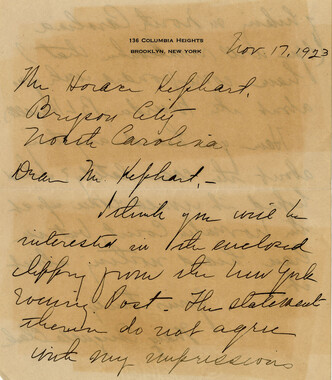 136 COLUMBIA HEIGHTS
BROOKLYN, NEW YORK
Nov. 17, 1923
Mr Horace Kephart,
Bryson City
North Carolina
Dear Mr. Kephart,–
I think you will be
interested in the enclosed
clipping from the New York
Evening Post. The statements
therein do not agree
with my impressions